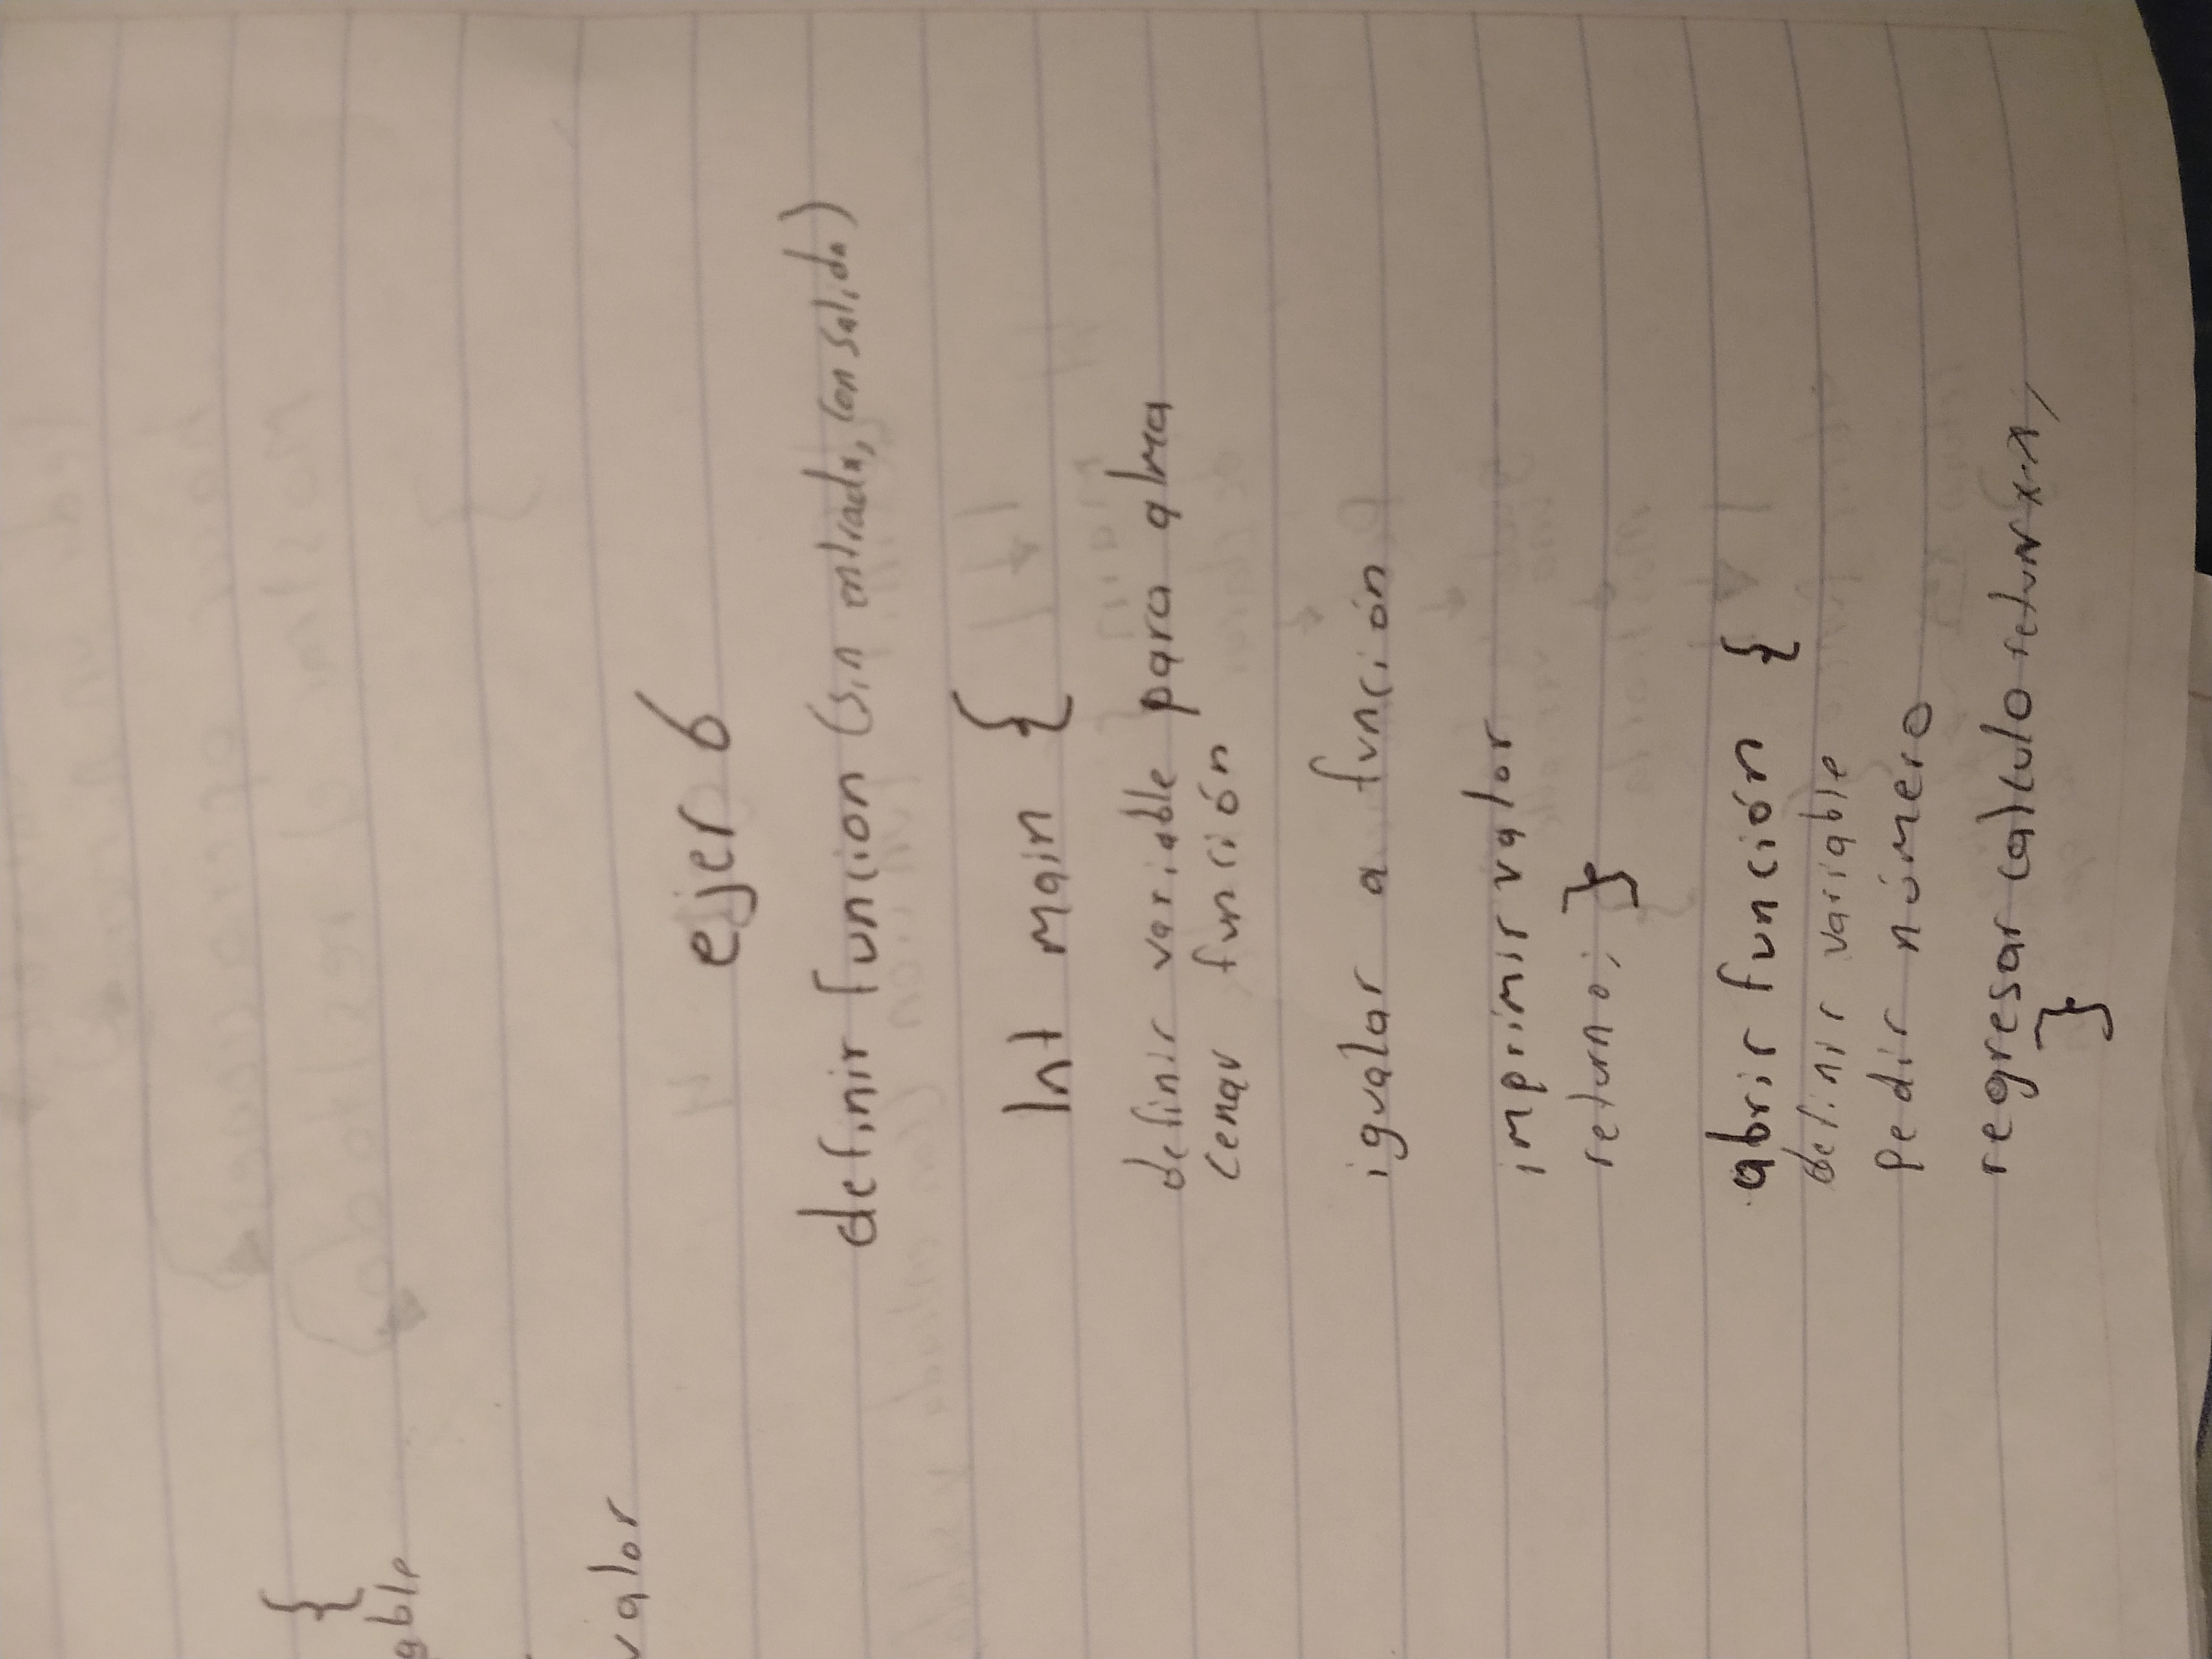 {
able
valor
ejer 6
definir funcion (sin entrada, con salida)
Int main {
definir variable para alma
cenar función
igualar a función
imprimir valor
return 0; }
abrir función {
definir variable
pedir número
regresar calculo return x·x;
}